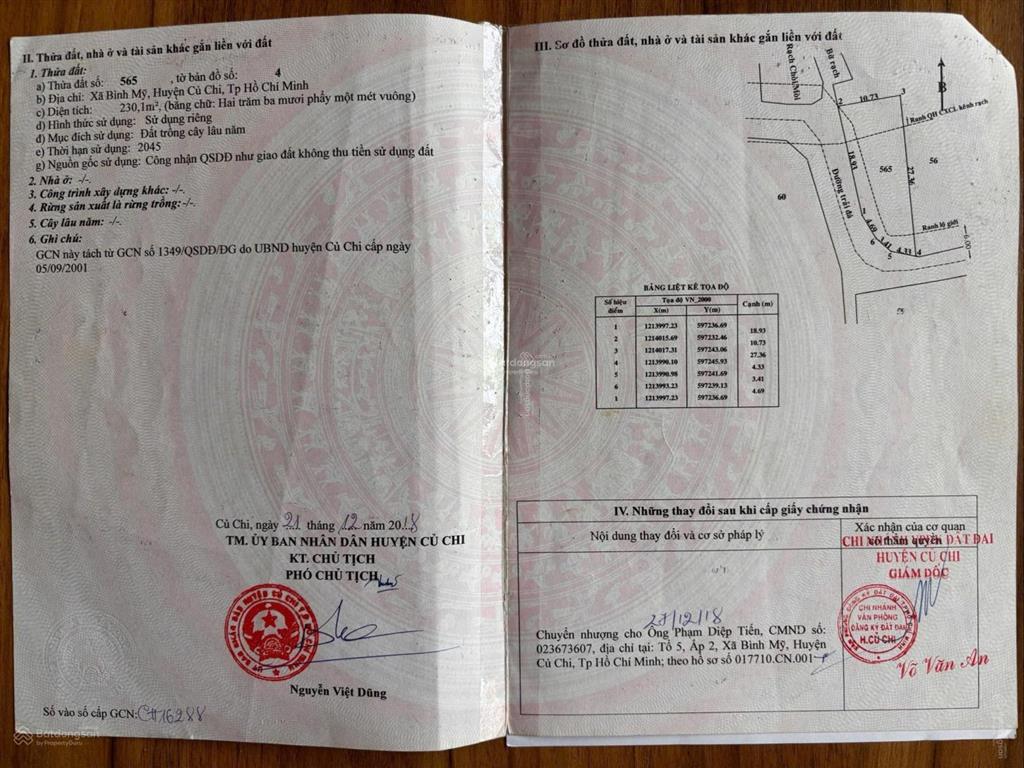 II. Thửa đất, nhà ở và tài sản khác gắn liền với đất
1. Thửa đất:
a) Thửa đất số: 565 , tờ bản đồ số: 4
b) Địa chỉ: Xã Bình Mỹ, Huyện Củ Chi, Tp Hồ Chí Minh
c) Diện tích: 230,1m², (bằng chữ: Hai trăm ba mươi phẩy một mét vuông)
d) Hình thức sử dụng: Sử dụng riêng
đ) Mục đích sử dụng: Đất trồng cây lâu năm
e) Thời hạn sử dụng: 2045
g) Nguồn gốc sử dụng: Công nhận QSDĐ như giao đất không thu tiền sử dụng đất
2. Nhà ở: -/-.
3. Công trình xây dựng khác: -/-.
4. Rừng sản xuất là rừng trồng: -/-.
5. Cây lâu năm: -/-.
6. Ghi chú:
GCN này tách từ GCN số 1349/QSDĐ/ĐG do UBND huyện Củ Chi cấp ngày
05/09/2001
Củ Chi, ngày 21 tháng 12 năm 2018
TM. ỦY BAN NHÂN DÂN HUYỆN CỦ CHI
KT. CHỦ TỊCH
PHÓ CHỦ TỊCH
Nguyễn Việt Dũng
Số vào sổ cấp GCN: CH16288
Batdongsan
by PropertyGuru
III. Sơ đồ thửa đất, nhà ở và tài sản khác gắn liền với đất
Rạch Chòi Mòi
Bờ rạch
B
2
10.73
3
Ranh QH CXCL kênh rạch
18.93
565
56
27.36
60
Đường trải đá
1
4.69
6
3.41
5
4.33
4
Ranh lộ giới
6.00
BẢNG LIỆT KÊ TỌA ĐỘ
Số hiệu điểm
Tọa độ VN_2000
Cạnh (m)
X(m) Y(m)
1 1213997.23 597236.69
18.93
2 1214015.69 597232.46
10.73
3 1214017.31 597243.06
27.36
4 1213990.10 597245.93
4.33
5 1213990.98 597241.69
3.41
6 1213993.23 597239.13
4.69
1 1213997.23 597236.69
Batdongsan
IV. Những thay đổi sau khi cấp giấy chứng nhận
Nội dung thay đổi và cơ sở pháp lý
Xác nhận của cơ quan
có thẩm quyền
CHI NHÁNH VPĐK ĐẤT ĐAI
HUYỆN CỦ CHI
GIÁM ĐỐC
27/12/18
Chuyển nhượng cho Ông Phạm Diệp Tiến, CMND số:
023673607, địa chỉ tại: Tổ 5, Ấp 2, Xã Bình Mỹ, Huyện
Củ Chi, Tp Hồ Chí Minh; theo hồ sơ số 017710.CN.001
CHI NHÁNH
VĂN PHÒNG
ĐĂNG KÝ ĐẤT ĐAI
H.CỦ CHI
Võ Văn An